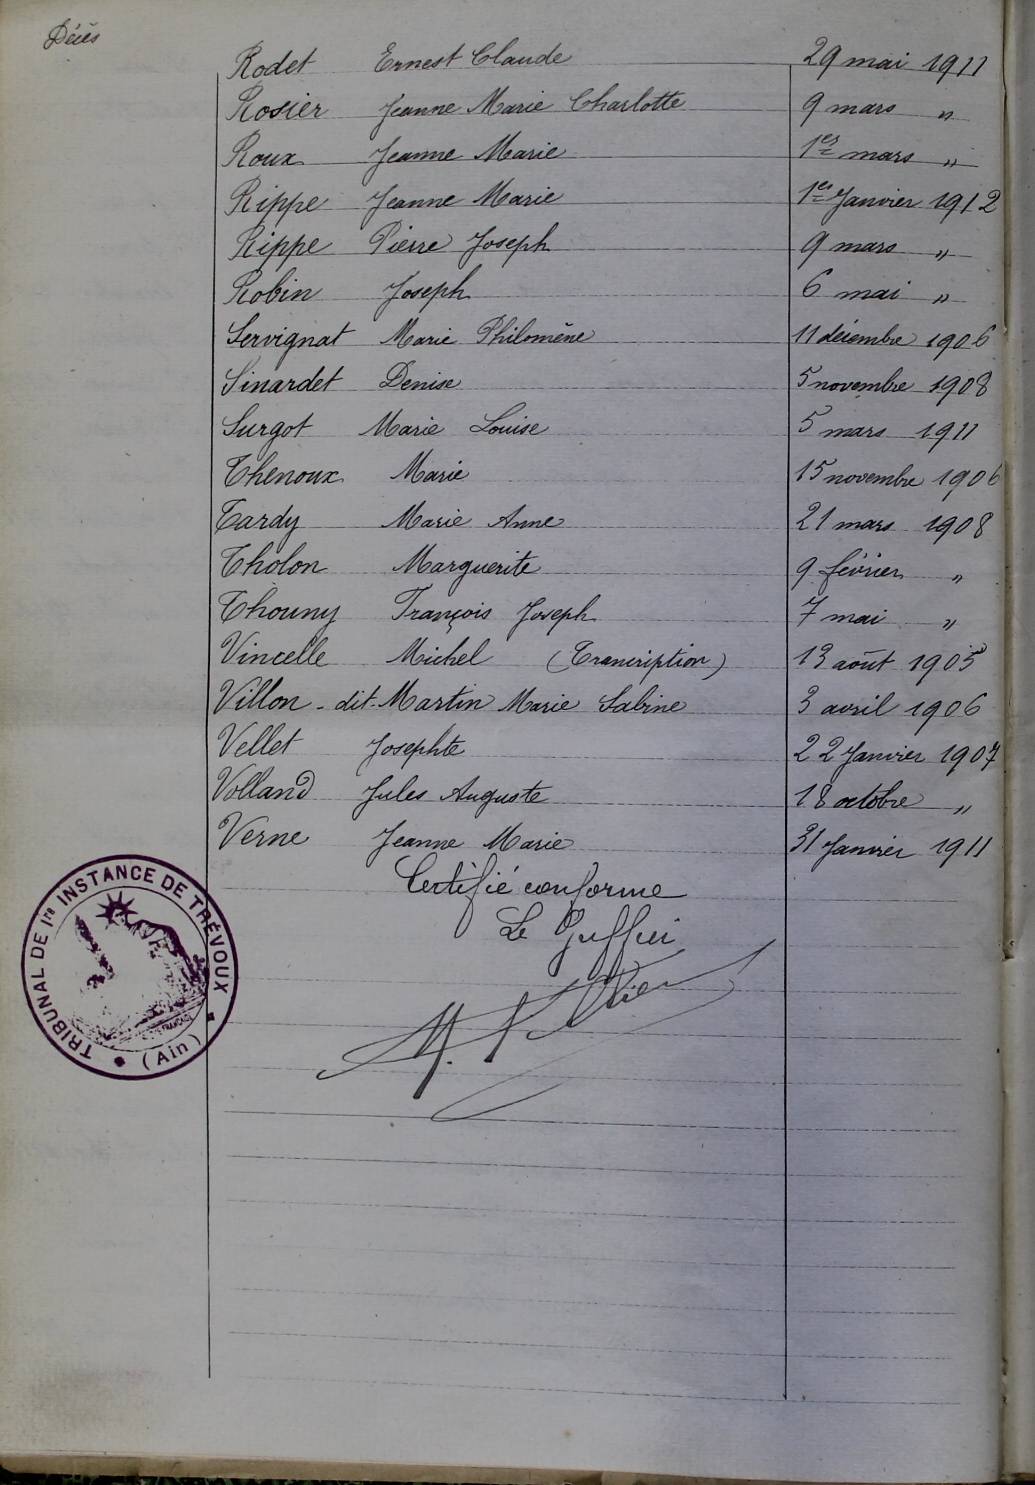 Décès
Rodet Ernest Claude 29 mai 1911
Rosier Jeanne Marie Charlotte 9 mars "
Roux Jeanne Marie 1er mars "
Rippe Jeanne Marie 1er Janvier 1912
Rippe Pierre Joseph 9 mars "
Robin Joseph 6 mai "
Servignat Marie Philomène 11 décembre 1906
Sinardet Denise 5 novembre 1908
Surgot Marie Louise 5 mars 1911
Thenoux Marie 15 novembre 1906
Tardy Marie Anne 21 mars 1908
Tholon Marguerite 9 février "
Thouny François Joseph 7 mai "
Vincelle Michel (Transcription) 13 août 1905
Villon - dit - Martin Marie Sabine 3 avril 1906
Vellet Josephte 22 Janvier 1907
Volland Jules Auguste 18 octobre "
Verne Jeanne Marie 31 Janvier 1911
Certifié conforme
Le Greffier
TRIBUNAL DE 1re INSTANCE DE TRÉVOUX
(Ain)